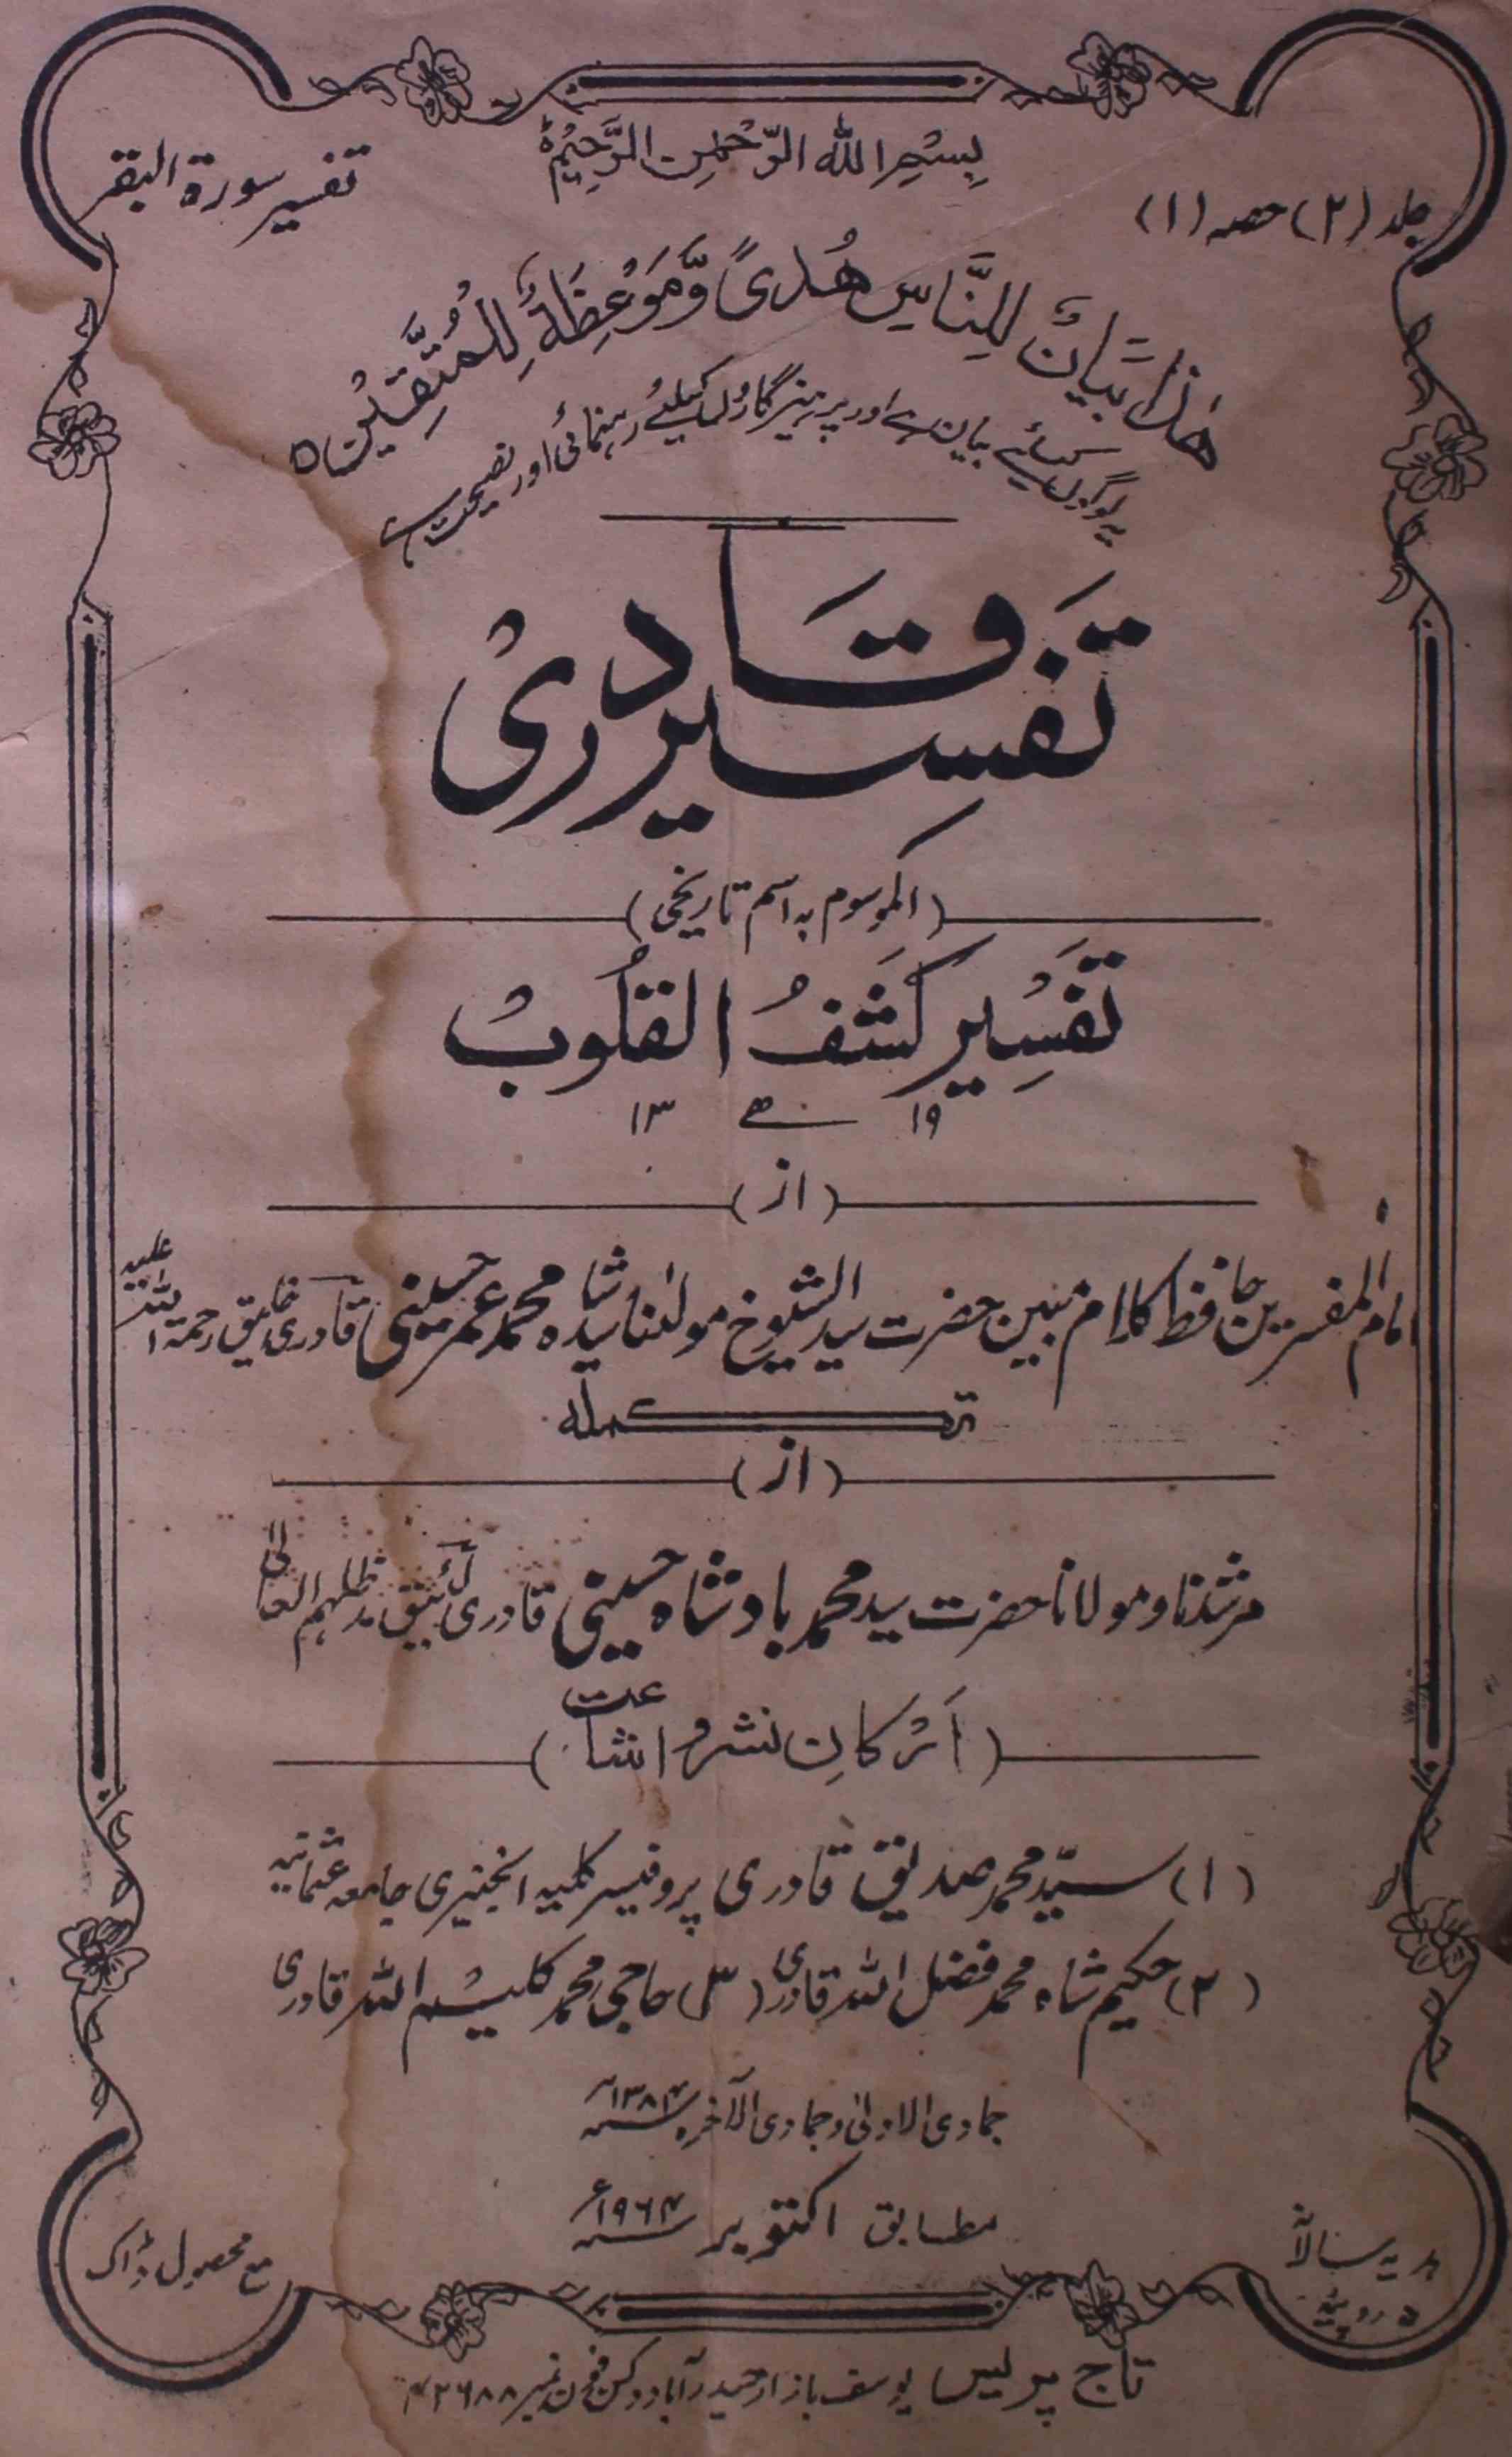 بِسْمِ اللهِ الرَّحْمٰنِ الرَّحِيْمِ
جلد (۲) حصہ (۱)
تفسیر سورۃ البقر
هٰذَا بَيَانٌ لِّلنَّاسِ هُدًى وَّمَوْعِظَةٌ لِّلْمُتَّقِيْنَ ٥
یہ لوگوں کیلئے بیان ہے اور پرہیزگاروں کیلئے رہنمائی اور نصیحت ہے
تَفسِیر قَادرِیْ
(الموسوم بہ اسم تاریخی)
تَفْسِیر کَشَفُ القلُوبْ
۱۹ ھ ۱۳
(از)
امام المفسرین حافظ کلام مبین حضرت سید الشیوخ مولٰنا سید شاہ محمد عمر حسینی قادری خلیق رحمۃ اللہ علیہ
تکملہ
(از)
مرشدنا و مولانا حضرت سید محمد بادشاہ حسینی قادری لئیق مدظلہم العالی
(اَرْکانِ نشر و اشاعت)
(۱) سیّد محمد صدیق قادری پروفیسر کلیہ انجنیری جامعہ عثمانیہ
(۲) حکیم شاہ محمد فضل اللہ قادری (۳) حاجی محمد کلیم اللہ قادری
جمادی الاولیٰ و جمادی الآخرہ ۱۳۸۴ھ
مطابق اکتوبر ۱۹۶۴ء
ہدیہ سالانہ
۵ روپیے
مع محصول ڈاک
تاج پریس یوسف بازار حیدرآباد دکن فون نمبر ۴۲۶۸۸